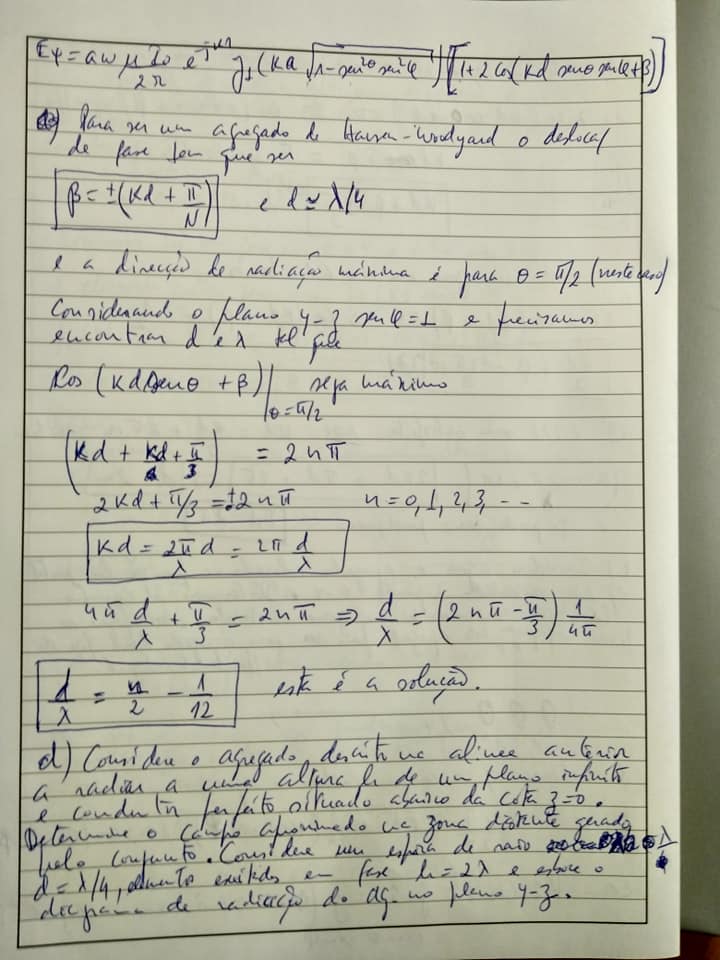 Eφ = aωμI₀/2r e^-jkr J₁(Ka√(1-sen²θ sen²φ)) [1+2cos(Kd senθ senφ+β)]
c) Para ser um agregado de Hansen-Woodyard o desloca/
de fase tem que ser
β = ±(Kd + π/N) e d ≃ λ/4
e a direcção de radiação máxima é para θ = π/2 (neste caso)
Considerando o plano y-z senφ=1 e precisamos
encontrar d e λ tal que
Cos (Kd senθ + β)|θ=π/2 seja máximo
(Kd + Kd + π/3) = 2nπ
2Kd + π/3 = ±2nπ n=0,1,2,3,---
Kd = 2π/λ d = 2π d/λ
4π d/λ + π/3 = 2nπ ⇒ d/λ = (2nπ - π/3) 1/4π
d/λ = n/2 - 1/12 esta é a solução.
d) Considere o agregado descrito na alinea anterior
a radiar a uma altura h de um plano infinito
e condutor perfeito situado abaixo da cota z=0.
Determine o campo aproximado na zona distante gerado
pelo conjunto. Considere um espira de raio λ
d = λ/4, elementos exitados em fase h=2λ e esboce o
diagrama de radiação do ag. no plano y-z.